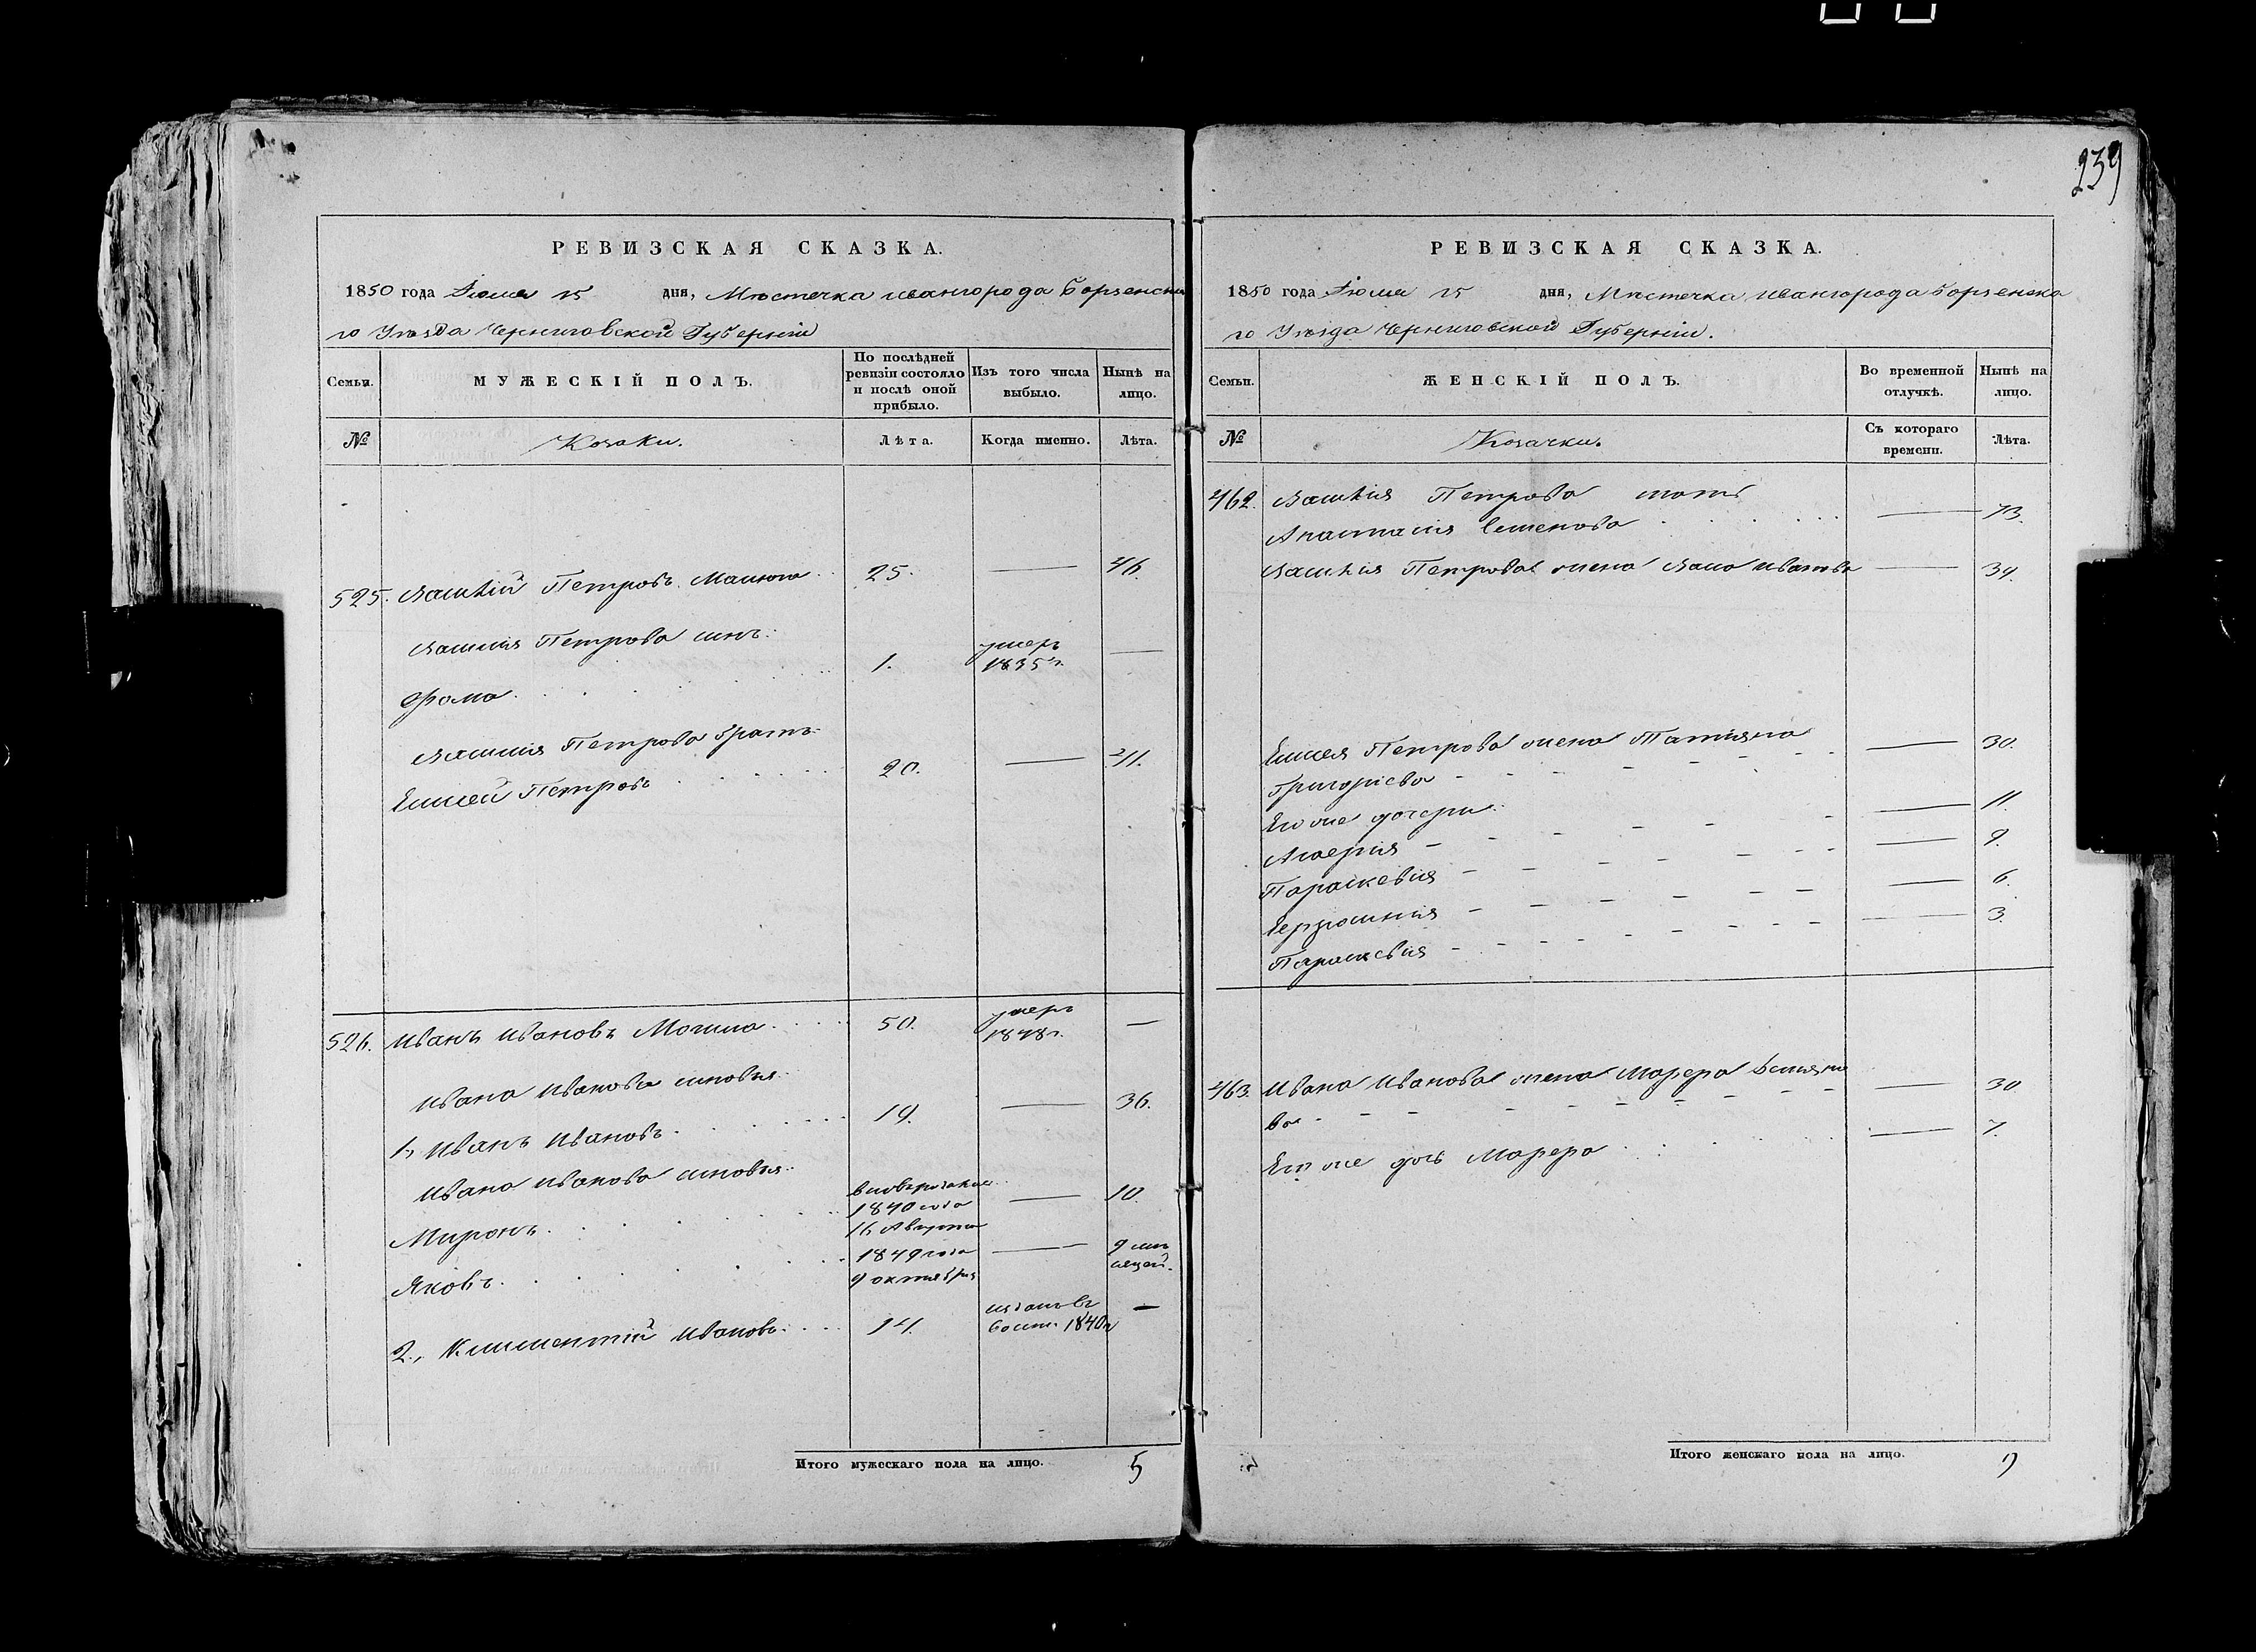 239
РЕВИЗСКАЯ СКАЗКА.
1850 года Іюля 15 дня, Мѣстечка Ивангорода Борзенска
го Уѣзда Черниговской Губерніи
Семьи.
МУЖЕСКІЙ ПОЛЪ.
По послѣдней ревизіи состояло и послѣ оной прибыло.
Изъ того числа выбыло.
Нынѣ на лицо.
№
Козаки.
Лѣта.
Когда именно.
Лѣта.
525. Василій Петровъ 25. — 46.
Василія Петрова сынъ
Фома 1. умеръ 1835 г. —
Василія Петрова братъ
Елисей Петровъ 20. — 41.
526. Иванъ Ивановъ Могила 50. умеръ 1848 г. —
Ивана Иванова сыновья
1, Иванъ Ивановъ 19. — 36.
Ивана Иванова сыновья
Миронъ 1840 года 16 Августа — 10.
Яковъ 1849 года 9 октября — 9 мѣсяцей.
2., Климентій Ивановъ 14. 1840 г —
Итого мужескаго пола на лицо. 5
РЕВИЗСКАЯ СКАЗКА.
1850 года Іюля 15 дня, Мѣстечка Ивангорода Борзенска
го Уѣзда Черниговской Губерніи.
Семьи.
ЖЕНСКІЙ ПОЛЪ.
Во временной отлучкѣ.
Нынѣ на лицо.
№
Козачки.
Съ котораго времени.
Лѣта.
462. Василія Петрова мать
Анастасія Семенова — 73.
Василія Петрова жена Иванова — 34.
Елисея Петрова жена Татіяна
Григоріева — 30.
Его же дочери
— 11.
Параскевія — 9.
— 6.
Параскевія — 3.
463. Ивана Иванова жена Марфа Демьяно
ва — 30
Его же дочь Марфа — 7.
Итого женскаго пола на лицо.